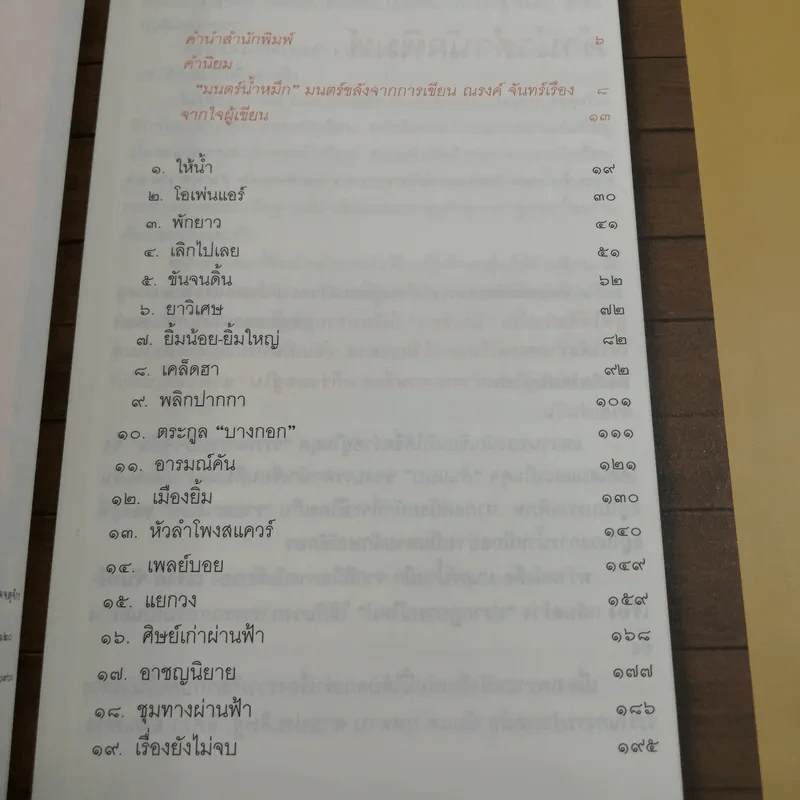 คำนำสำนักพิมพ์ ๖
คำนิยม
“มนตร์น้ำหมึก” มนตร์ขลังจากการเขียน ณรงค์ จันทร์เรือง ๘
จากใจผู้เขียน ๑๓
๑. ให้น้ำ ๑๙
๒. โอเพ่นแอร์ ๓๐
๓. พักยาว ๔๑
๔. เลิกไปเลย ๕๑
๕. ขันจนดิ้น ๖๒
๖. ยาวิเศษ ๗๒
๗. ยิ้มน้อย-ยิ้มใหญ่ ๘๒
๘. เคล็ดฮา ๙๒
๙. พลิกปากกา ๑๐๑
๑๐. ตระกูล “บางกอก” ๑๑๑
๑๑. อารมณ์คัน ๑๒๑
๑๒. เมืองยิ้ม ๑๓๐
๑๓. หัวลำโพงสแควร์ ๑๔๐
๑๔. เพลย์บอย ๑๔๙
๑๕. แยกวง ๑๕๙
๑๖. ศิษย์เก่าผ่านฟ้า ๑๖๘
๑๗. อาชญนิยาย ๑๗๗
๑๘. ชุมทางผ่านฟ้า ๑๘๖
๑๙. เรื่องยังไม่จบ ๑๙๕